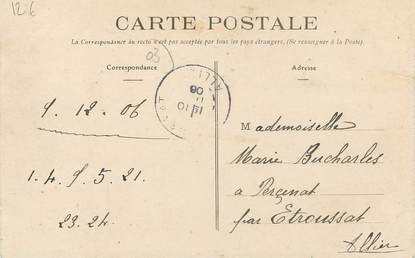 12.6
CARTE POSTALE
La Correspondance du recto n'est pas acceptée par tous les pays étrangers. (Se renseigner à la Poste).
Correspondance
03
Adresse
ALLIER
10
06
9. 12. 06
1. 4. 9. 5. 21.
23. 24.
Mademoiselle
Marie Bucharles
à Percenat
par Etroussat
Allier